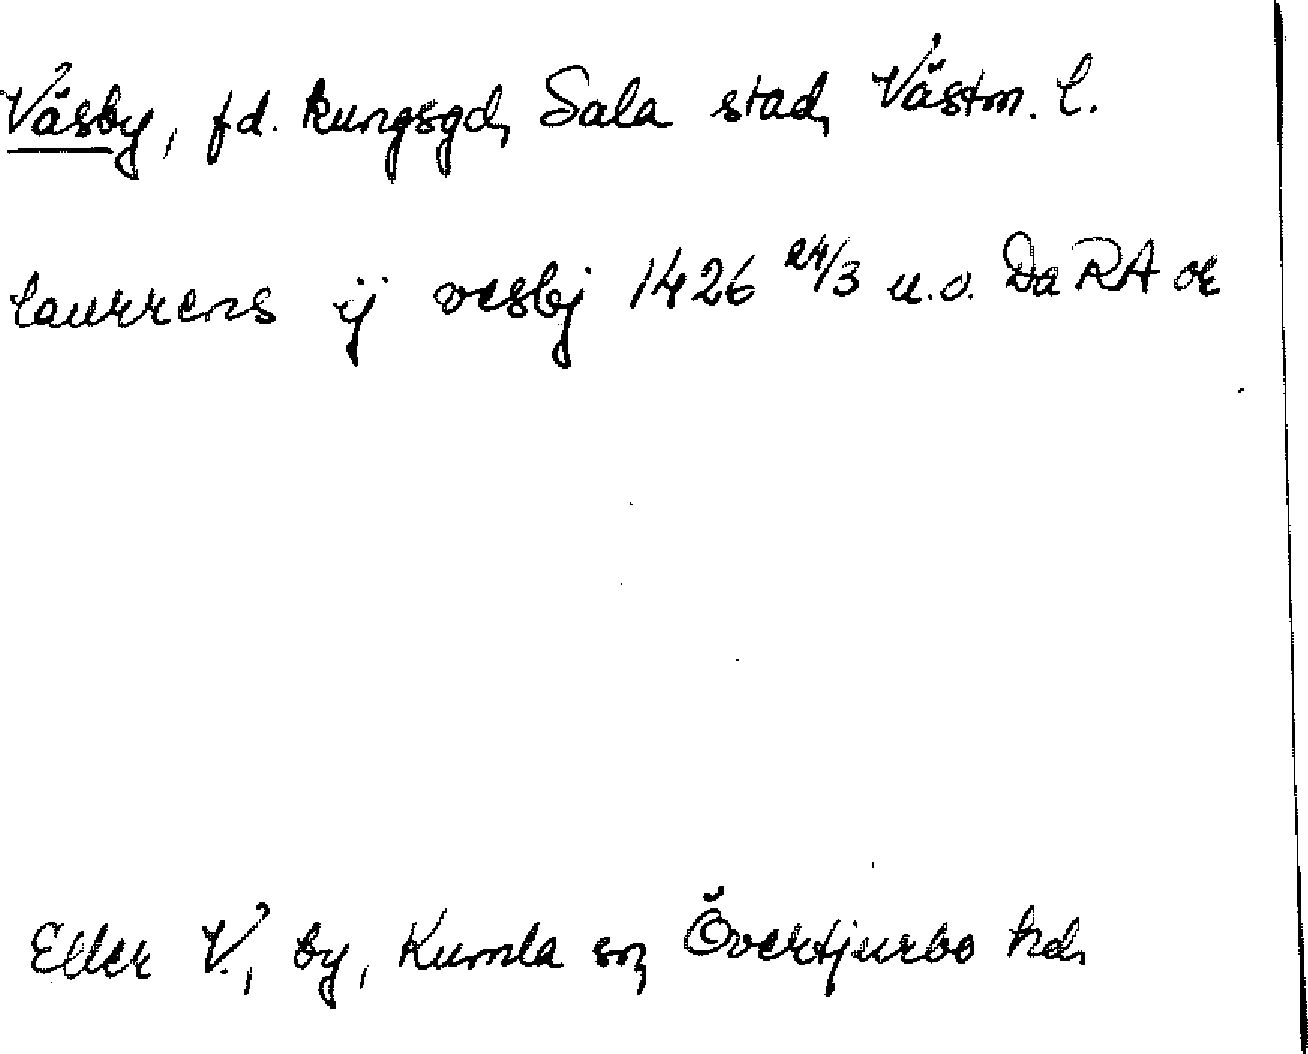 Väsby, fd. kungsgd, Sala stad, Västm. l.
laurrens ij vesbj 1426 24/3 u.o. Da RA or
Eller V., by, Kumla sn, Övertjurbo hd.